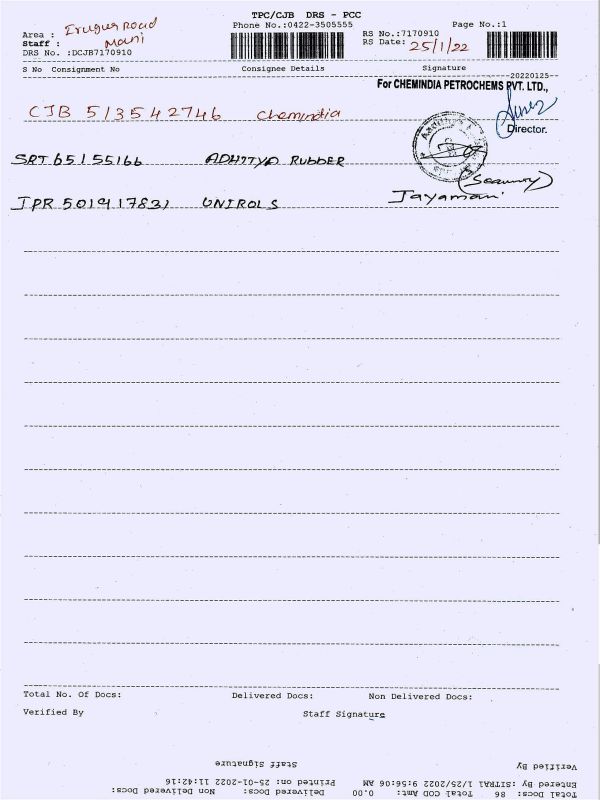 TPC/CJB DRS - PCC
Phone No.:0422-3505555
Page No.:1
Area : Irugur Road
Staff : Mani
DRS No. :DCJB7170910
RS No.:7170910
RS Date: 25/1/22
S No Consignment No Consignee Details Signature
20220125
For CHEMINDIA PETROCHEMS PVT. LTD.,
CJB 513542746 Chemindia
Director.
SRT 65155166 ADHITYA RUBBER
(Security)
JPR 501917831 UNIROLS Jayamani
Total No. Of Docs: Delivered Docs: Non Delivered Docs:
Verified By Staff Signature
Verified By Staff Signature
Entered By: SITRA1 1/25/2022 9:56:06 AM Printed on: 25-01-2022 11:42:16
Total Docs: 86 Total COD Amt: 0.00 Delivered Docs: Non Delivered Docs: